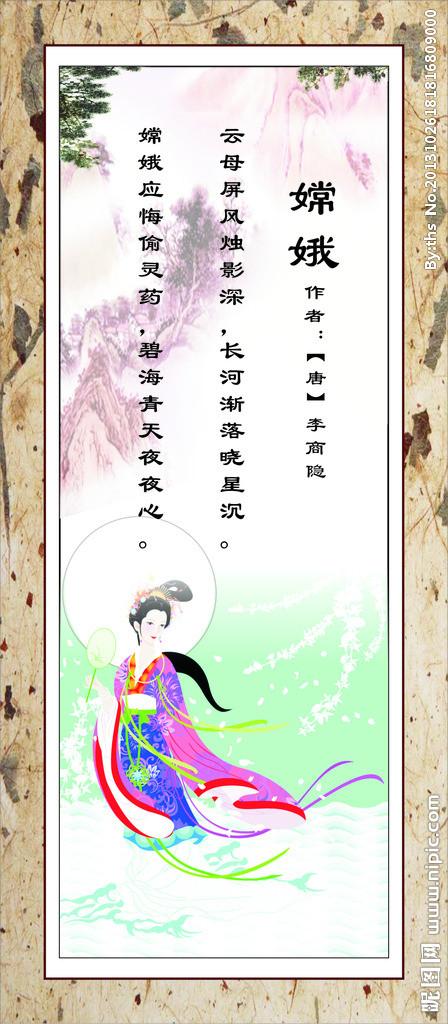 嫦娥
作者：【唐】李商隐
云母屏风烛影深，长河渐落晓星沉。
嫦娥应悔偷灵药，碧海青天夜夜心。
By:ths No.20131026181816809000
昵图网 www.nipic.com